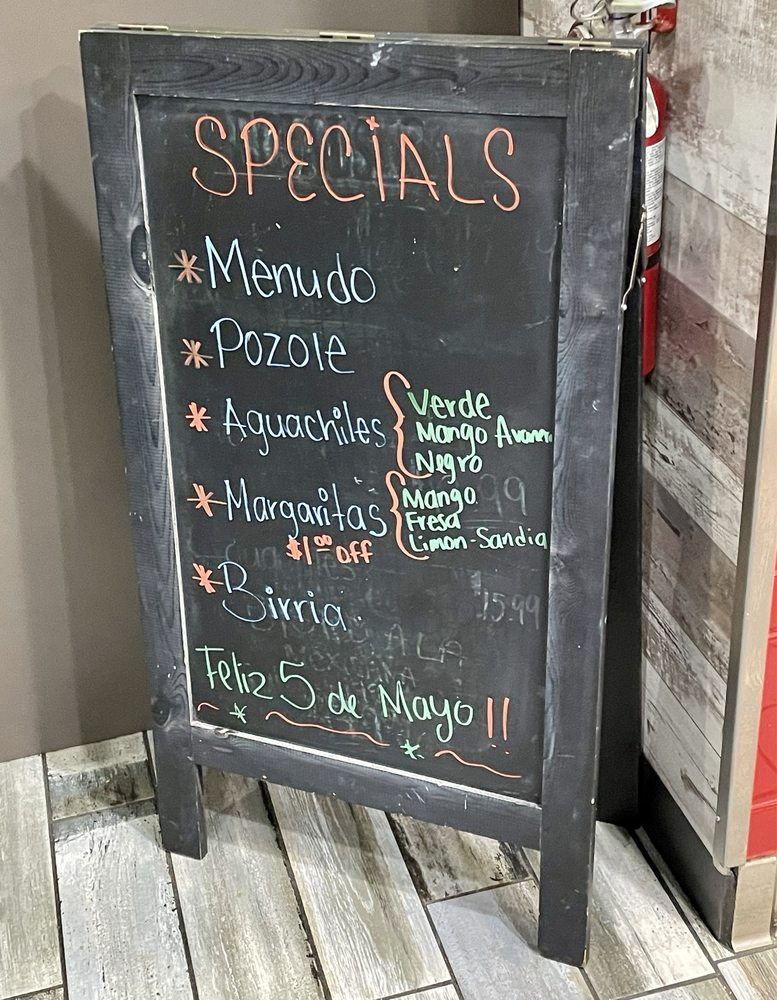 SPECiALS
* Menudo
* Pozole
* Aguachiles { Verde
Mango Avanero
Negro
* Margaritas { Mango
Fresa
Limon-Sandia
$1.00 off
* Birria
15.99
Feliz 5 de Mayo!!